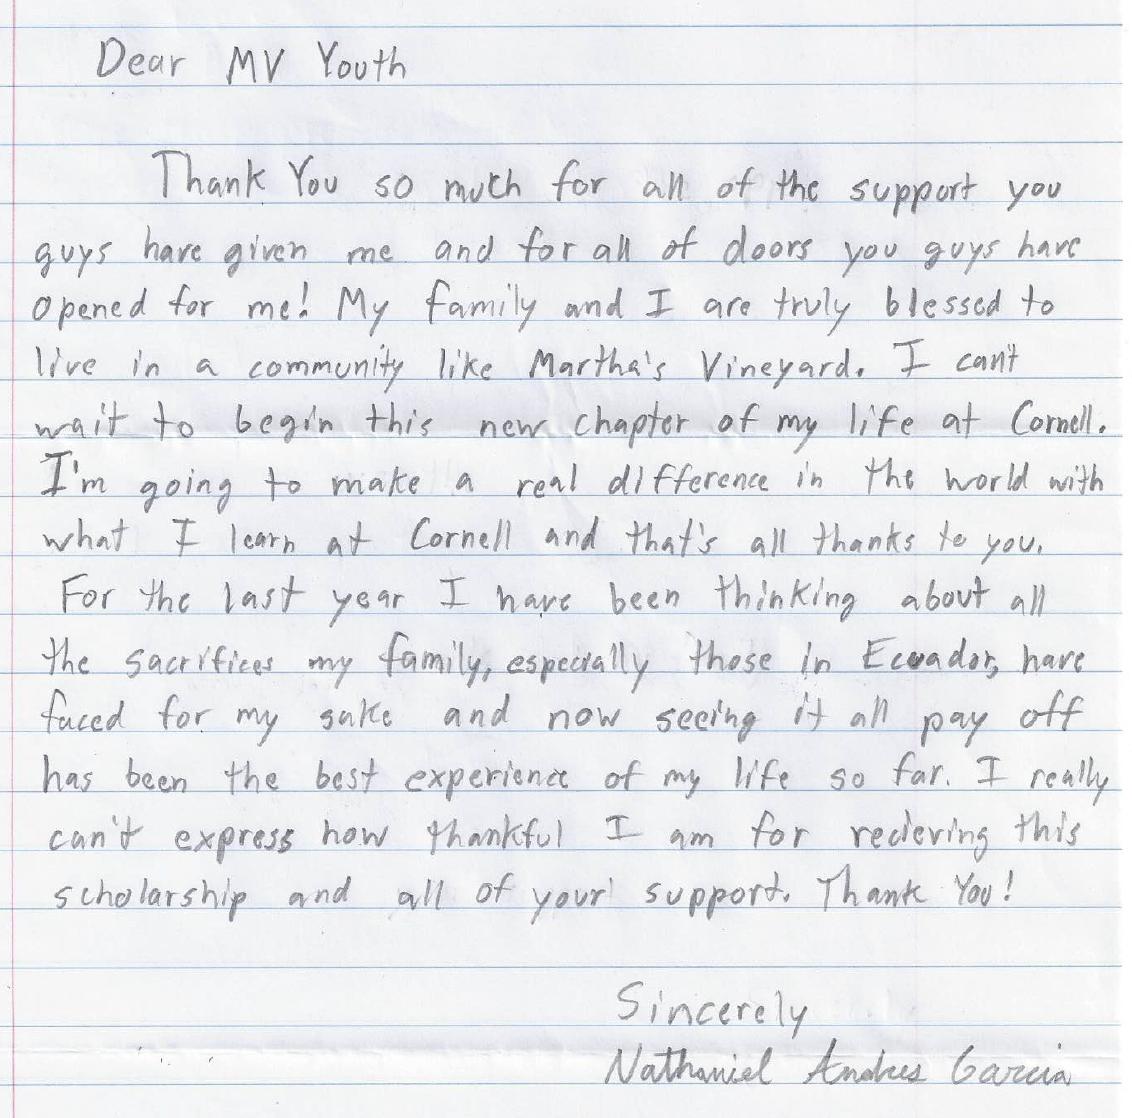 Dear MV Youth
Thank You so much for all of the support you
guys have given me and for all of doors you guys have
opened for me! My family and I are truly blessed to
live in a community like Martha's Vineyard. I can't
wait to begin this new chapter of my life at Cornell.
I'm going to make a real difference in the world with
what I learn at Cornell and that's all thanks to you.
For the last year I have been thinking about all
the sacrifices my family, especially those in Ecuador, have
faced for my sake and now seeing it all pay off
has been the best experience of my life so far. I really
can't express how thankful I am for recieving this
scholarship and all of your support. Thank You!
Sincerely
Nathaniel Andres Garcia